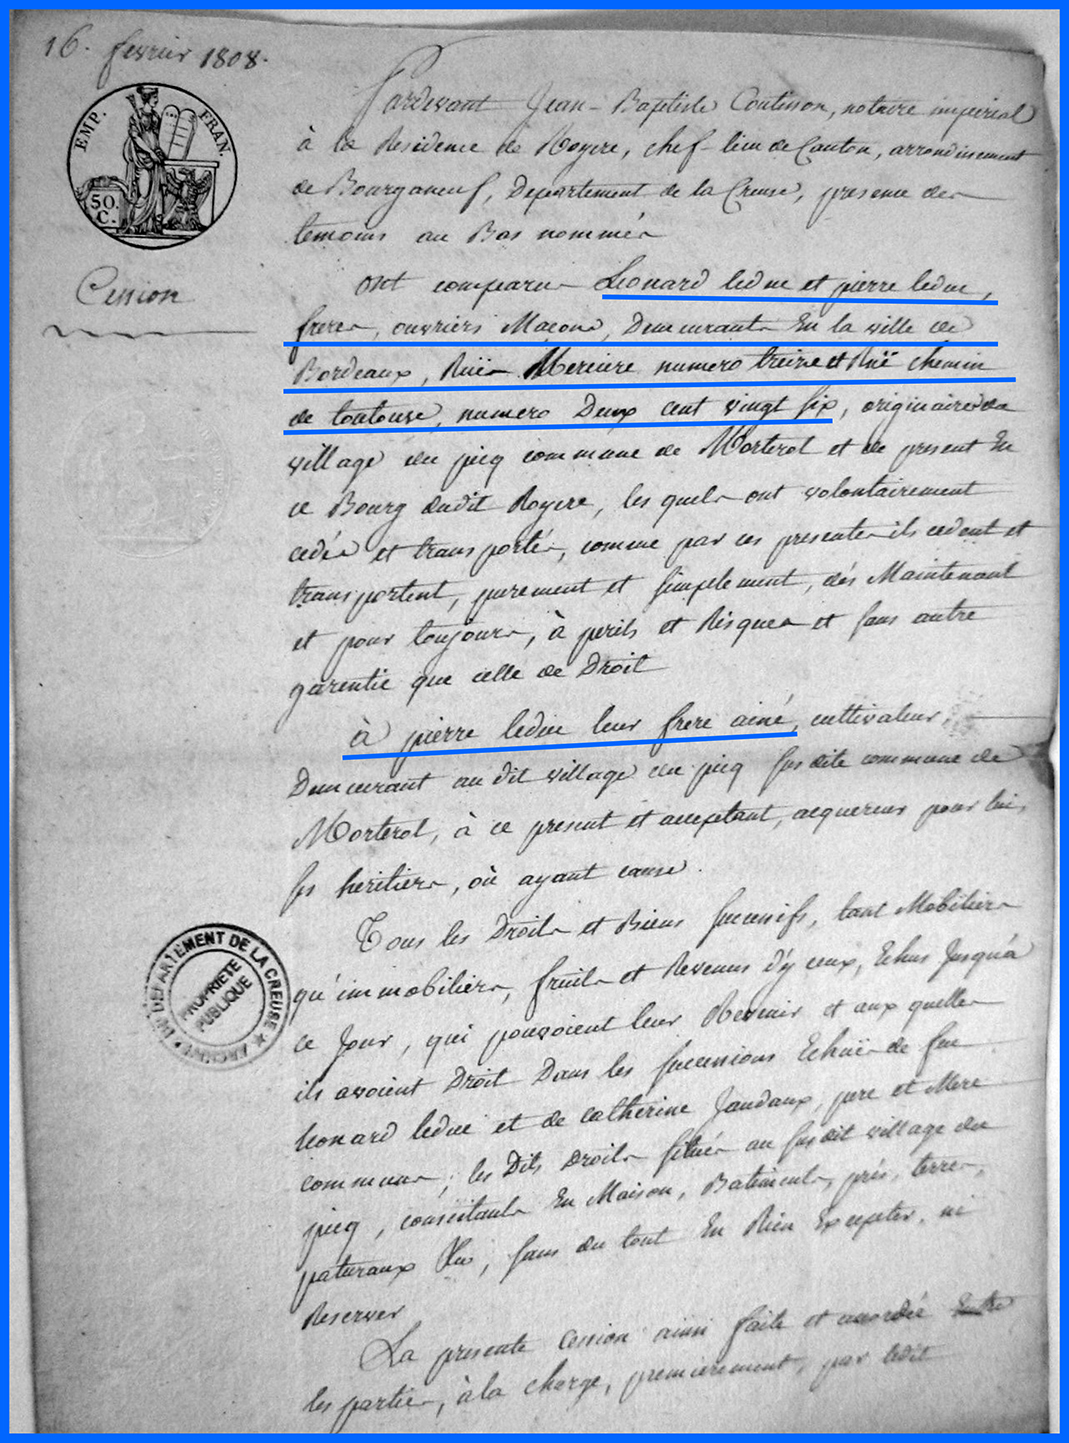 16. fevrier 1808.
EMP. FRAN.
50. C.
Cession
Pardevant Jean-Baptiste Coutisson, notaire imperial
à la Residence de Royere, chef-lieu de Canton, arrondissement
de Bourganeuf, Departement de la Creuse, presence des
temoins au Bas nommés
ont comparu Leonard leduc et pierre leduc,
freres, ouvriers Macons, Demeurants En la ville de
Bordeaux, Ruë Merciere numero treize et Ruë chemin
de toulouse, numero Deux cent vingt six, originaires du
village du picq commune de Morterol et de present En
ce Bourg dudit Royere, les quels ont volontairement
cedés et transportés, comme par ces presentes ils cedent et
transportent, purement et simplement, dés Maintenant
et pour toujours, à perils et Risques et sans autre
garentie que celle de Droit
à pierre leduc leur frere ainé, cultivateur,
Demeurant au dit village du picq sus dite commune de
Morterol, à ce present et acceptant, acquereur pour lui,
ses heritiers, où ayant cause.
Tous les Droits et Biens successifs, tant Mobiliers
qu'immobiliers, fruits et Revenus d'y ceux, Echus Jusqu'à
ce Jour, qui pouvoient leur Revenir et aux quelles
ils avoient Droit Dans les successions Echuës de feu
leonard leduc et de catherine Jandaux, pere et Mere
communs; les Dits Droits situés au susdit village du
picq, consistants En Maison, Batiments, prés, terres,
paturaux &a, sans du tout En Rien Excepter, ni
Reserver
La presente Cession ainsi faite et accordée
les parties, à la charge, premierement, par ledit
ARCHIVES DU DEPARTEMENT DE LA CREUSE
PROPRIETE
PUBLIQUE